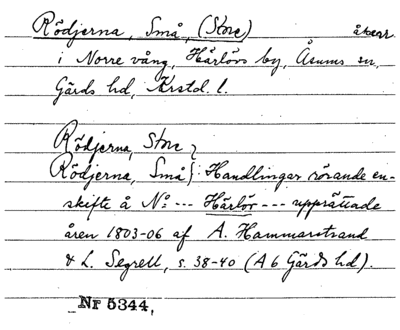 Rödjerna, Små, (Store) åkrar
i Norre vång, Härlövs by, Åsums sn,
Gärds hd, Krstd. l.
Rödjerna, Store
Rödjerna, Små } : Handlingar rörande en-
skifte å No --- Härlöv --- upprättade
åren 1803-06 af A. Hammarstrand
& L. Segrell, s. 38-40 (A 6 Gärds hd).
Nr 5344,